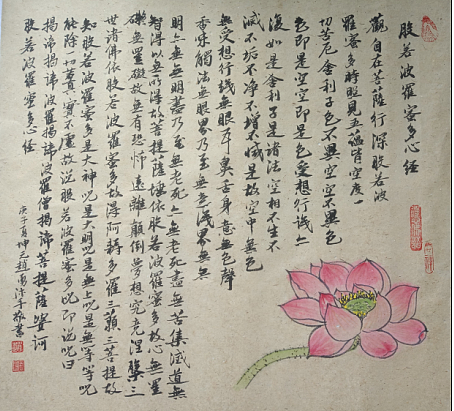 般若波羅蜜多心經
觀自在菩薩行深般若波
羅蜜多時照見五蘊皆空度一
切苦厄舍利子色不異空空不異色
色即是空空即是色受想行識亦
復如是舍利子是諸法空相不生不
滅不垢不净不增不减是故空中無色
無受想行識無眼耳鼻舌身意無色聲
香味觸法無眼界乃至無意識界無無
明亦無無明盡乃至無老死亦無老死盡無苦集滅道無
智得以無所得故菩提薩埵依般若波羅蜜多故心無罣
礙無罣礙故無有恐怖遠離顛倒夢想究竟涅槃三
世諸佛依般若波羅蜜多故得阿耨多羅三藐三菩提故
知般若波羅蜜多是大神咒是大明咒是無上咒是無等等咒
能除一切苦真實不虛故說般若波羅蜜多咒即說咒曰
揭諦揭諦波羅揭諦波羅僧揭諦菩提薩婆訶
般若波羅蜜多心經
庚子夏敬書